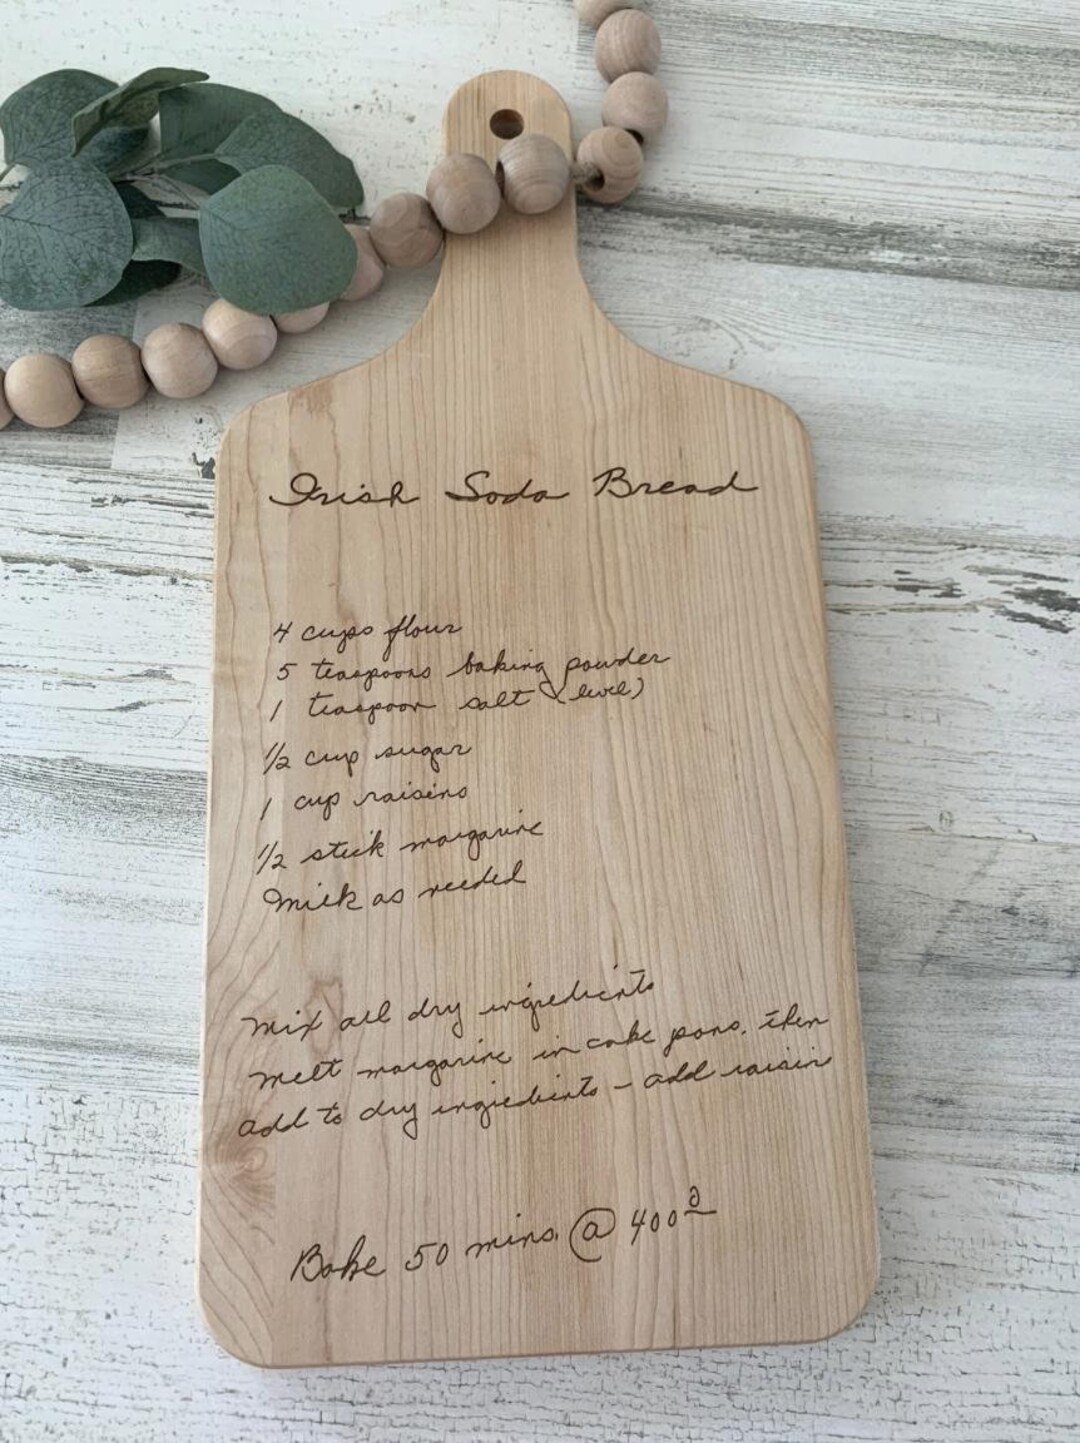 Irish Soda Bread
4 cups flour
5 teaspoons baking powder
1 teaspoon salt (level)
1/2 cup sugar
1 cup raisins
1/2 stick margarine
Milk as needed
Mix all dry ingredients
Melt margarine in cake pans. then
add to dry ingredients - add raisins
Bake 50 mins. @ 400°